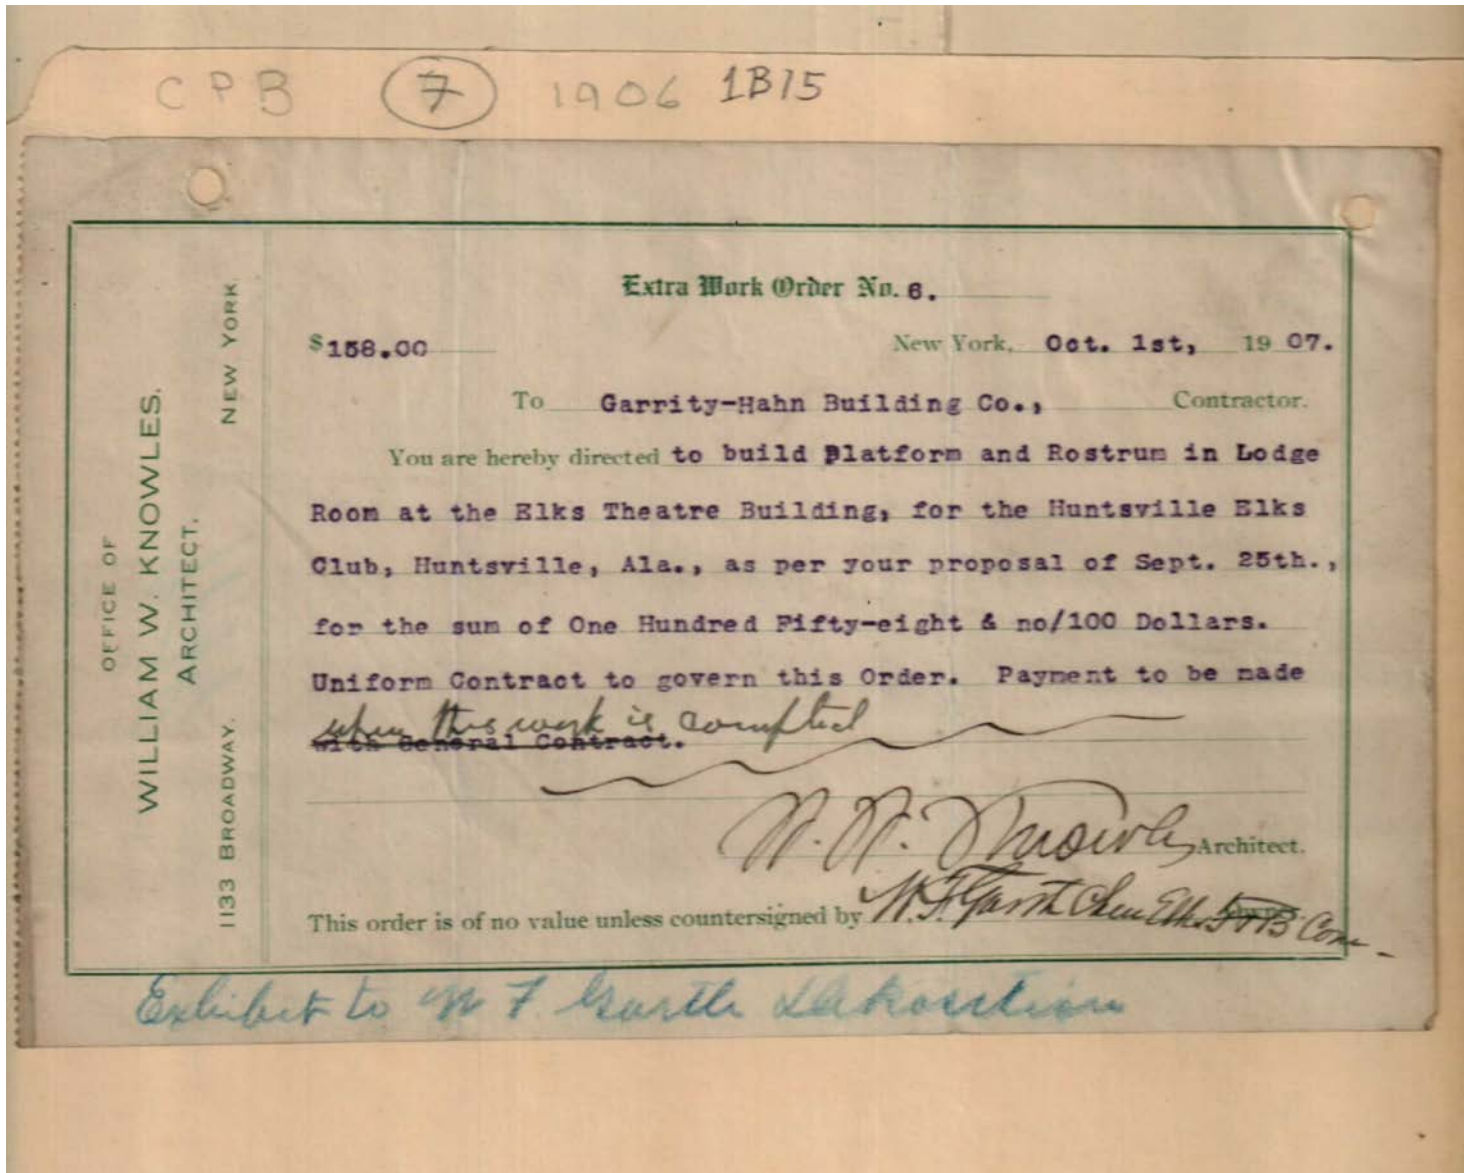 CPB 7 1906 1B15
OFFICE OF
WILLIAM W. KNOWLES.
ARCHITECT.
1133 BROADWAY. NEW YORK.
Extra Work Order No. 6.
$158.00 New York, Oct. 1st, 1907.
To Garrity-Hahn Building Co., Contractor.
You are hereby directed to build Platform and Rostrum in Lodge
Room at the Elks Theatre Building, for the Huntsville Elks
Club, Huntsville, Ala., as per your proposal of Sept. 25th.,
for the sum of One Hundred Fifty-eight & no/100 Dollars.
Uniform Contract to govern this Order. Payment to be made
when this work is complted
with General Contract.
W. W. Knowles Architect.
This order is of no value unless countersigned by W. F. Garth Chm Elks B Com
Exhibit to W F Garth